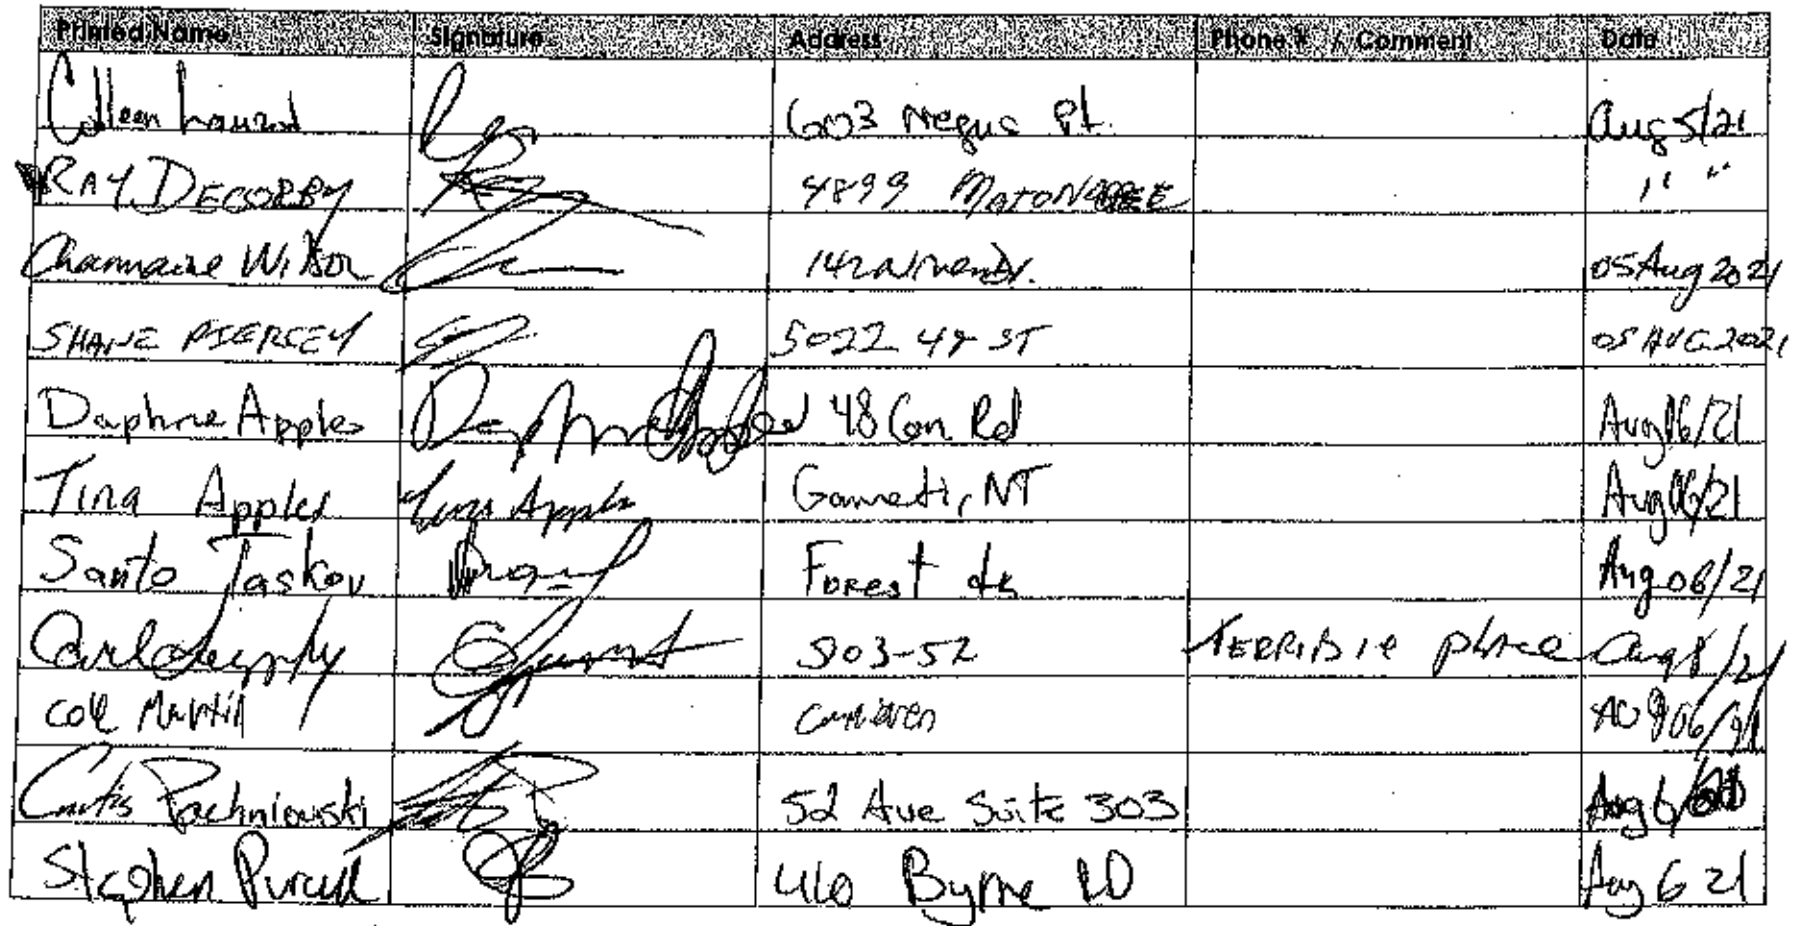 Printed Name Signature Address Phone # / Comment Date
Colleen 603 Negus Pt. Aug 5/21
RAY DECORBY 4899 " "
Charmaine Wilson 05 Aug 2021
SHANE PIERCEY 5022 49 ST 05 AUG 2021
Daphne Apples Daphne Apples 48 Con Rd Aug 06/21
Tina Apples Tina Apples Gameti, NT Aug 06/21
Santo Taskov Forest dr Aug 06/21
903-52 TERRIBLE place Aug
Cole Martin Aug 06/21
Curtis Pachniowski 52 Ave Suite 303 Aug 6/
Stephen Purcell 460 Byrne RD Aug 6 21